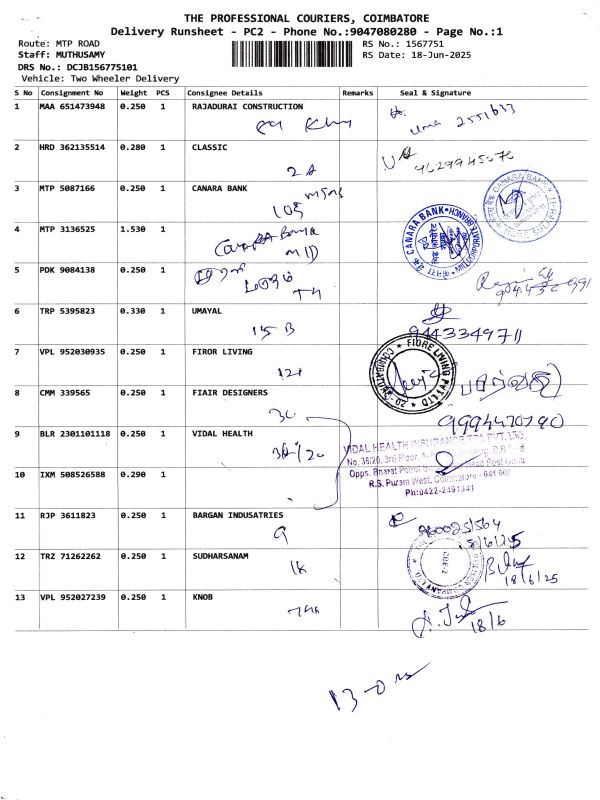 THE PROFESSIONAL COURIERS, COIMBATORE
Delivery Runsheet - PC2 - Phone No.:9047080280 - Page No.:1
Route: MTP ROAD
RS No.: 1567751
Staff: MUTHUSAMY
RS Date: 18-Jun-2025
DRS No.: DCJB156775101
Vehicle: Two Wheeler Delivery
S No Consignment No Weight PCS Consignee Details Remarks Seal & Signature
1 MAA 651473948 0.250 1 RAJADURAI CONSTRUCTION
Uma 2551633
2 HRD 362135514 0.280 1 CLASSIC
2A
3 MTP 5087166 0.250 1 CANARA BANK
CANARA BANK
4 MTP 3136525 1.530 1
Canara Bank
CANARA BANK
5 PDK 9084138 0.250 1
6 TRP 5395823 0.330 1 UMAYAL
15 B
9443349711
7 VPL 952030935 0.250 1 FIROR LIVING
121
FIORE LIVING PVT LTD
COIMBATORE
8 CMM 339565 0.250 1 FIAIR DESIGNERS
30
9994470790
9 BLR 2301101118 0.250 1 VIDAL HEALTH
36/20
VIDAL HEALTH INSURANCE TPA PVT. LTD.
No. 36/20, 3rd Floor,
Opps. Bharat Petrol Head Post Office
R.S. Puram West, Coimbatore - 641 002
Ph:0422-2491341
10 IXM 508526588 0.290 1
11 RJP 3611823 0.250 1 BARGAN INDUSATRIES
9
12 TRZ 71262262 0.250 1 SUDHARSANAM
1K
18/6/25
13 VPL 952027239 0.250 1 KNOB
18/6
13-0